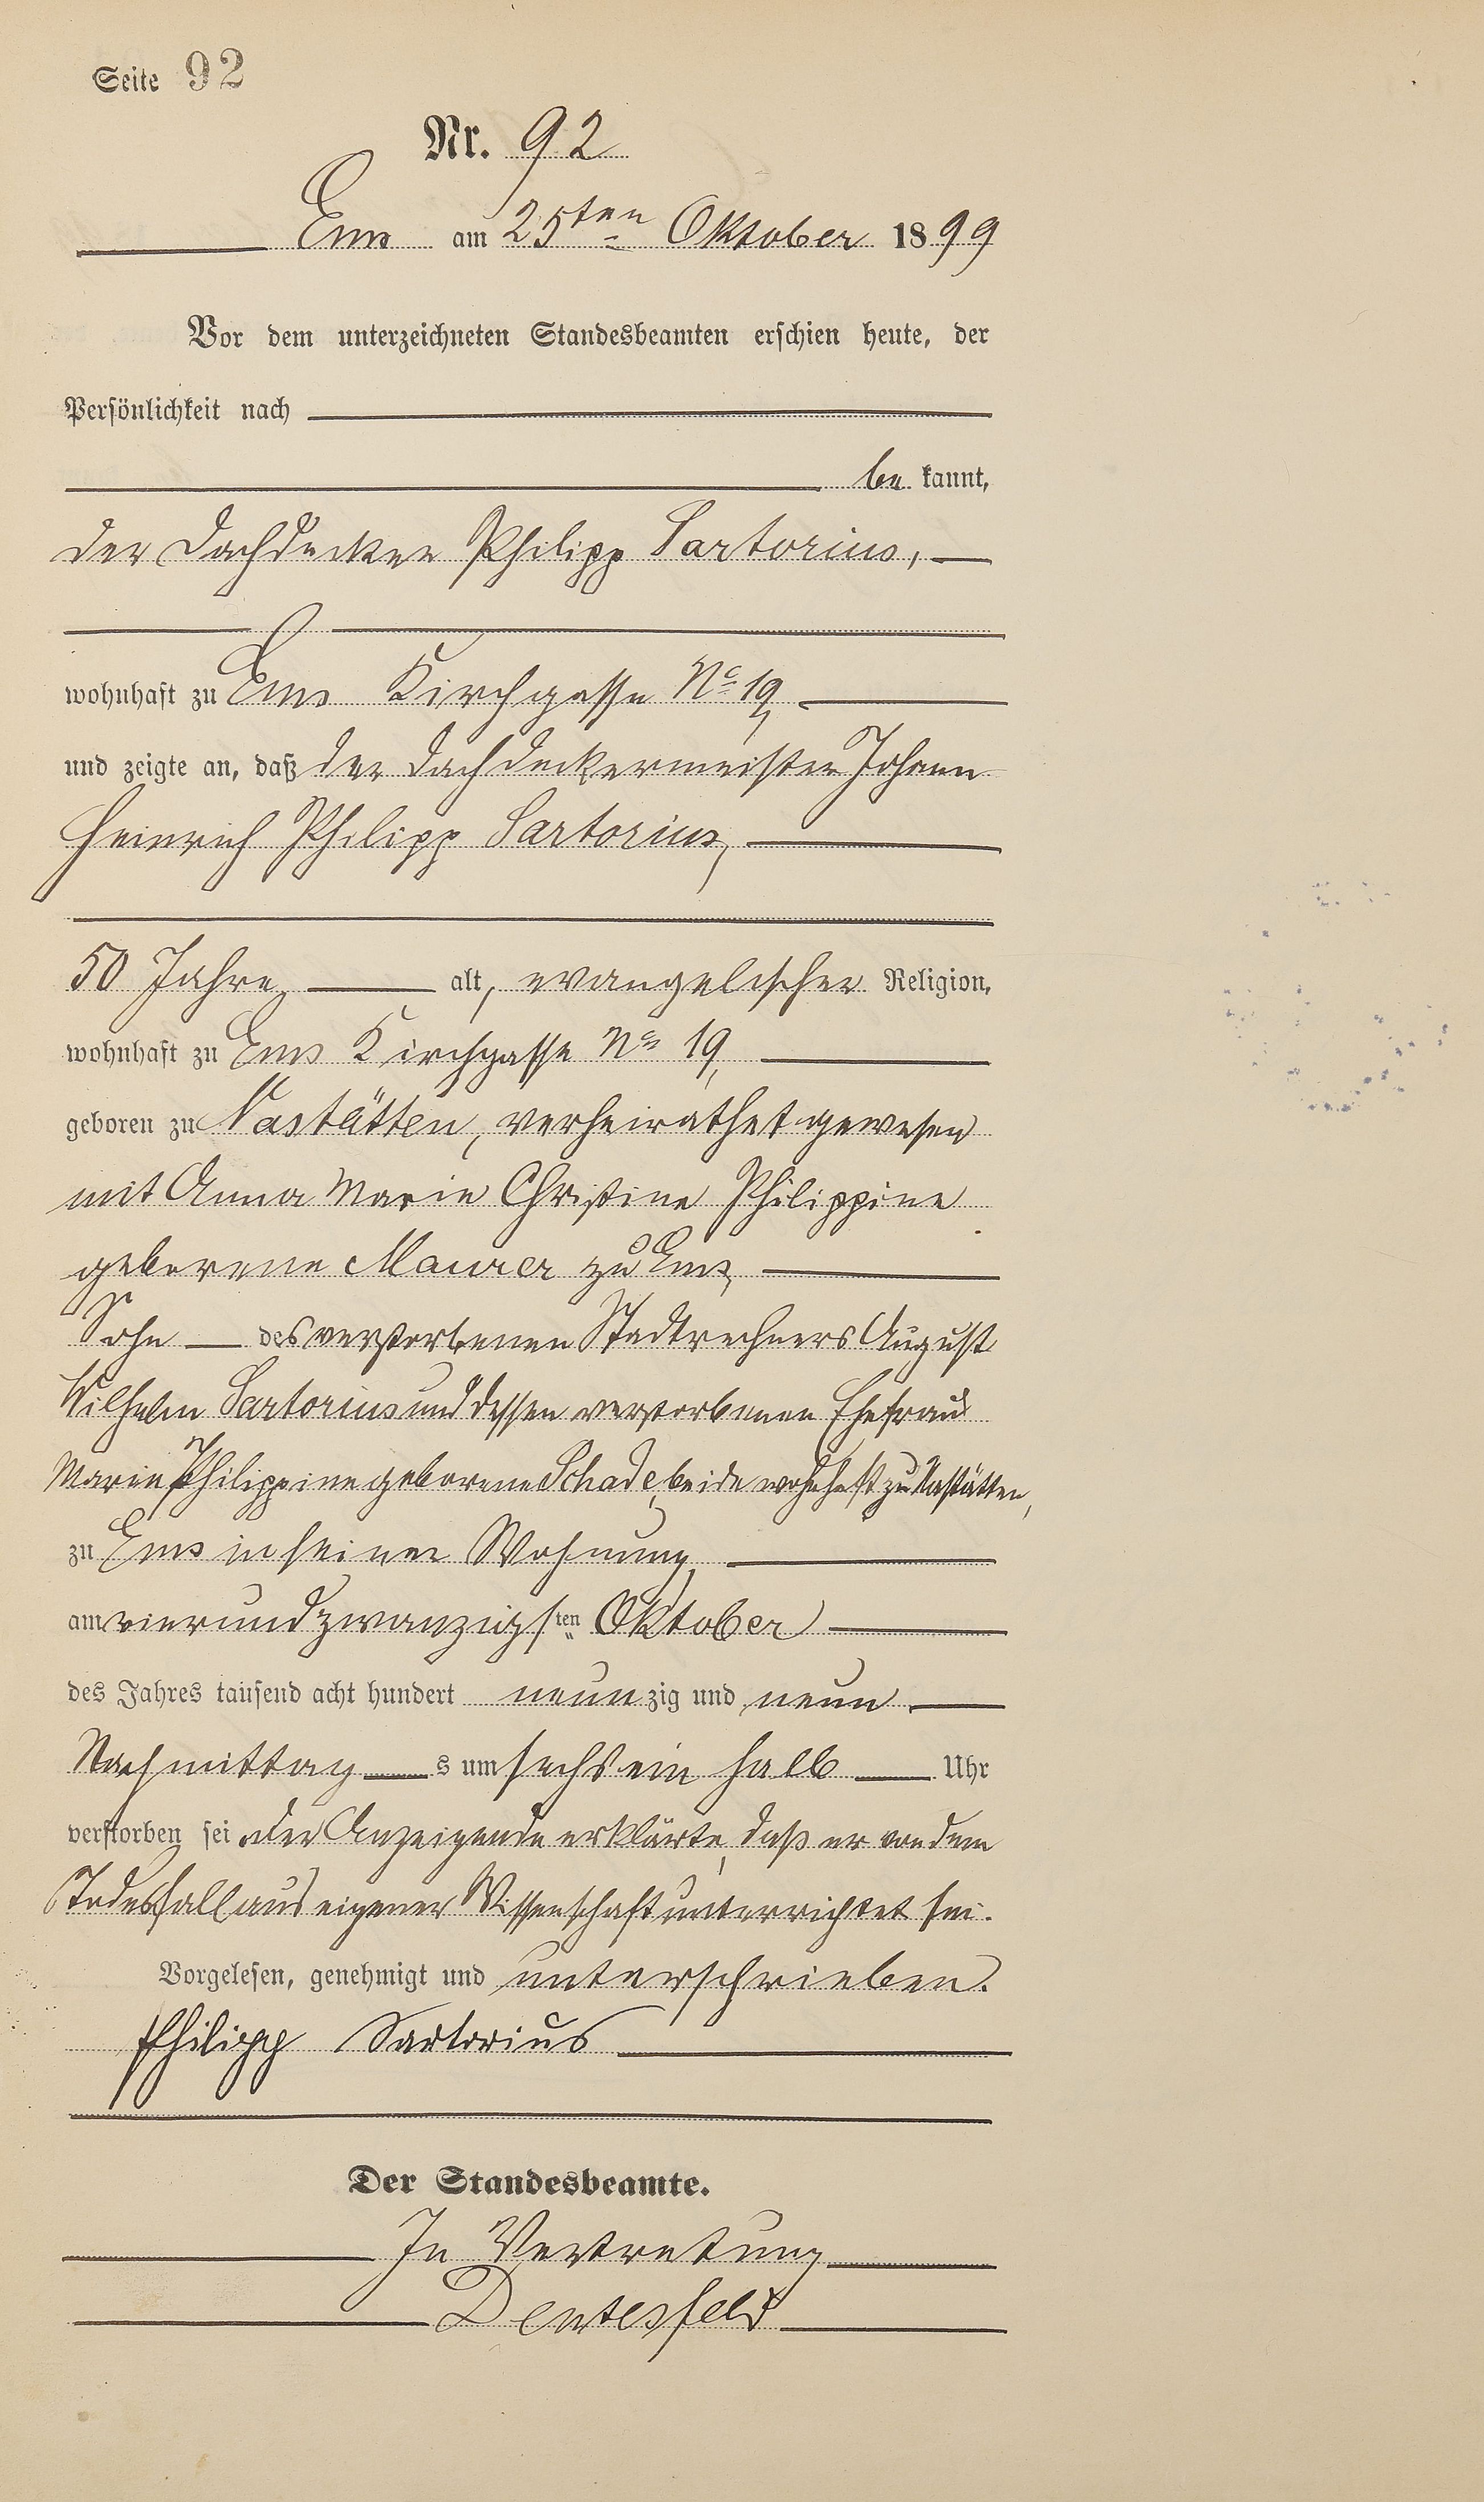 Seite 92
Nr. 92
Ems am 25ten Oktober 1899
Vor dem unterzeichneten Standesbeamten erschien heute, der
Persönlichkeit nach
be kannt,
der Dachdecker Philipp Sartorius,
wohnhaft zu Ems Kirchgasse No 19,
und zeigte an, daß der Dachdeckermeister Johann
Heinrich Philipp Sartorius,
50 Jahre, alt, evangelischer Religion,
wohnhaft zu Ems Kirchgasse No 19,
geboren zu Nastätten, verheirathet gewesen
mit Anna Marie Christine Philippine
geborene Maurer zu Ems,
Sohn des verstorbenen Stadtrechners August
Wilhelm Sartorius und dessen verstorbenen Ehefrau
Marie Philippine geborene Schade, beide wohnhaft zu Nastätten,
zu Ems in seiner Wohnung,
am vierundzwanzigsten Oktober
des Jahres tausend acht hundert neunzig und neun
Nachmittags um sechs ein halb Uhr
verstorben sei. Der Anzeigende erklärte, daß er von dem
Todesfall aus eigener Wissenschaft unterrichtet sei.
Vorgelesen, genehmigt und unterschrieben.
Philipp Sartorius
Der Standesbeamte.
In Vertretung